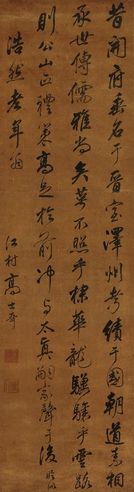 昔開府垂名于晉室澤州考績于國朝道氣相
承世傳儒雅尚矣莫不照乎棣華龍驤驥乎雲路
則公山正禮蹇高足於前沖与太真嗣家聲于後
浩然老年翁
江村高士奇